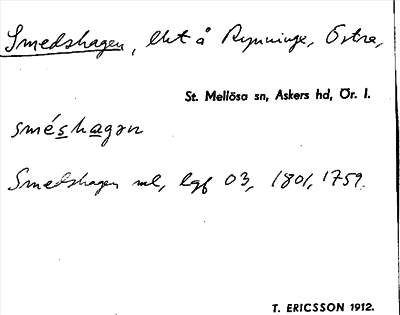 Smedshagen, lht å Rynninge, Östra,
St. Mellösa sn, Askers hd, Ör. l.
smés hagan
Smedshagen ml, lgf 03, 1801, 1759.
T. ERICSSON 1912.